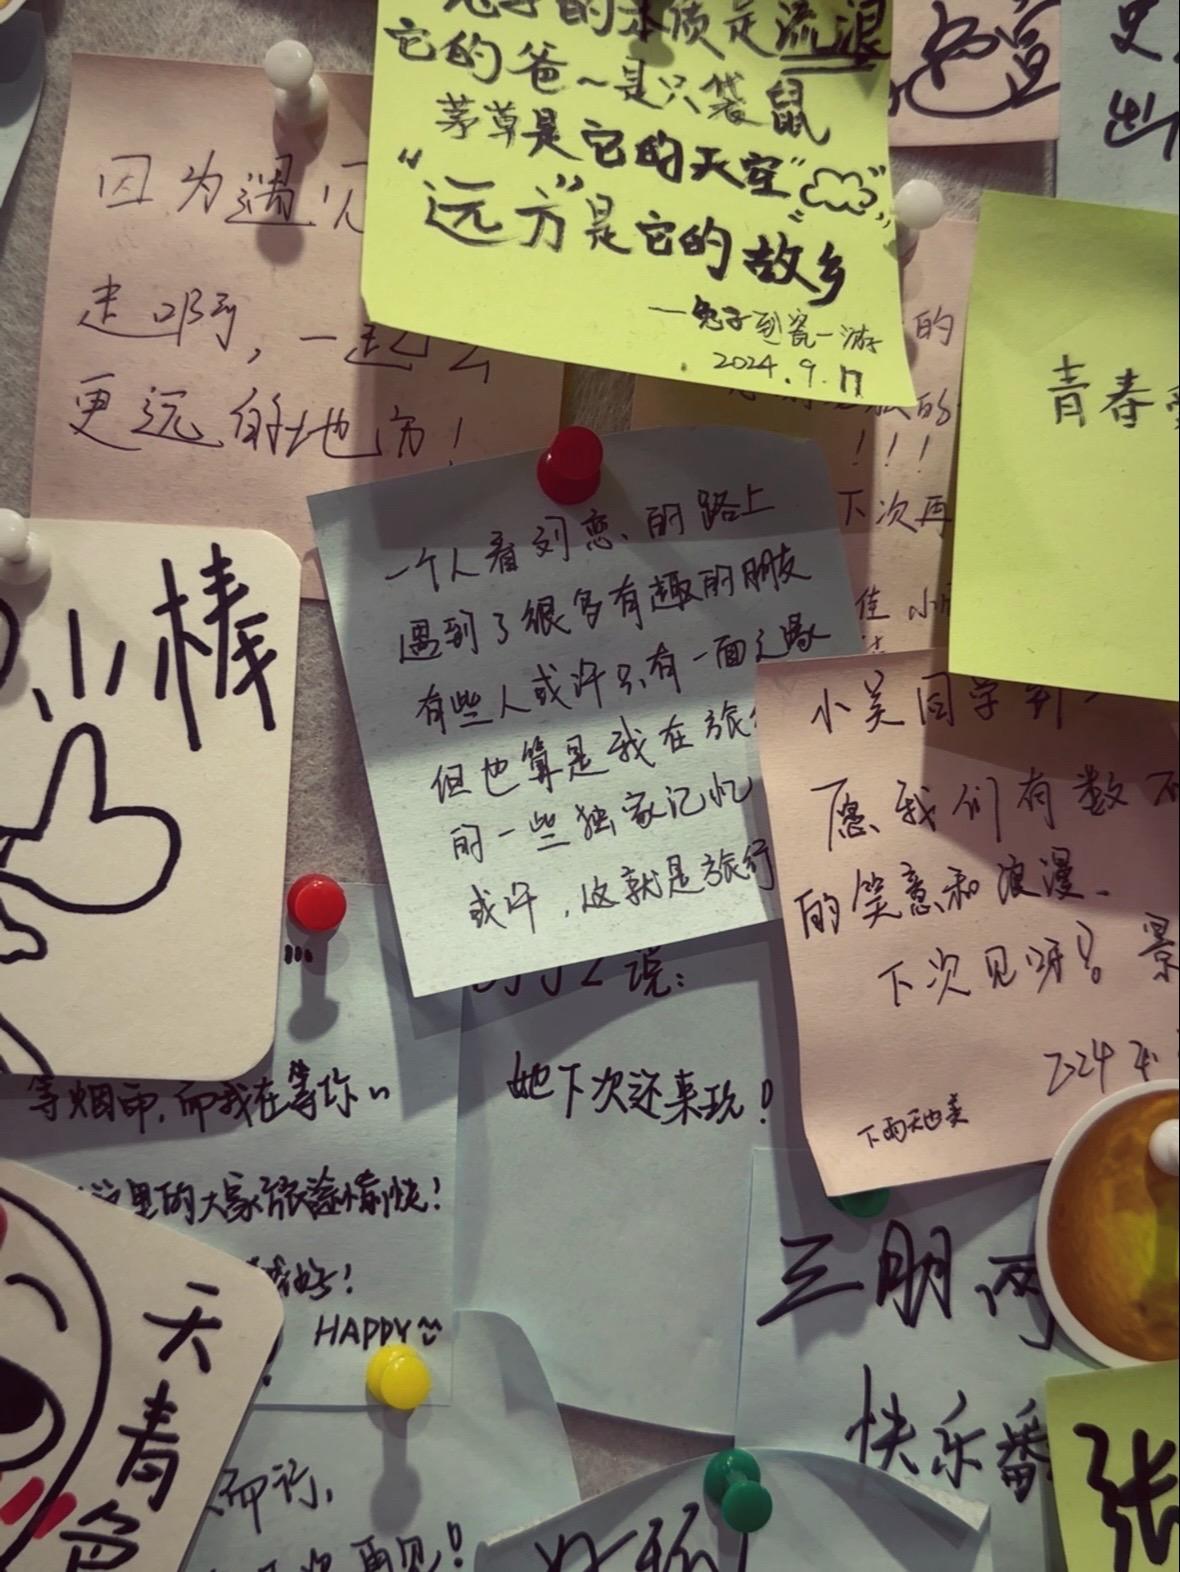 兔子的本质是流浪
它的爸～是只袋鼠
茅草是它的天空”
“远方”是它的故乡
——兔子到瓷一游
2024.9.17
因为遇见
走啊，一起去
更远的地方！
的
的
！！！
下次再
青春
一个人看刘恋、的路上
遇到了很多有趣的朋友
有些人或许只有一面之缘
但也算是我在旅
的一些独家记忆
或许，这就是旅行
小吴同学到
愿我们有数不
的笑意和浪漫、
下次见呀？景
2024
下雨天也美
棒
说：
她下次还来玩！
等烟雨，而我在等你
这里的大家旅途愉快！
HAPPY
天青色
而行，
再见！
三朋两
快乐番
张
好玩！